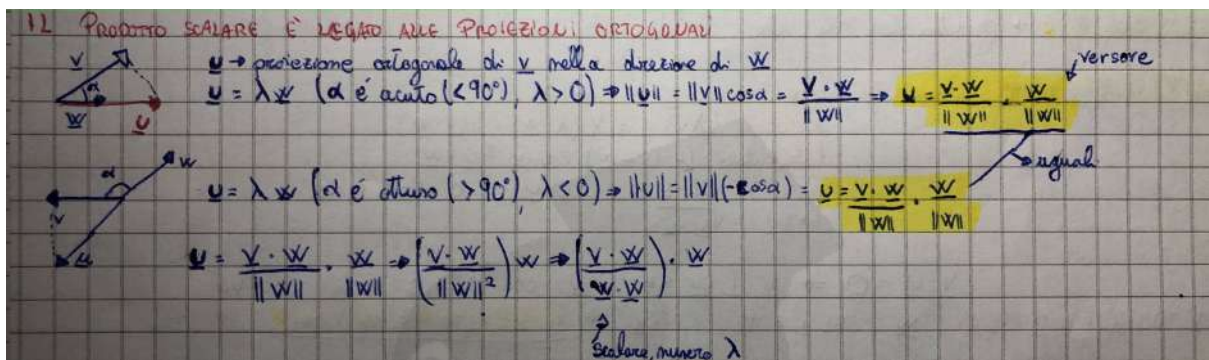 IL PRODOTTO SCALARE È LEGATO ALLE PROIEZIONI ORTOGONALI
v α w u
u → proiezione ortogonale di v nella direzione di w
versore
u = λ w (α é acuto (<90°), λ>0) ⇒ ||u|| = ||v|| cosα = v · w / ||w|| ⇒ u = v · w / ||w|| · w / ||w||
uguali
α w v u
u = λ w (α é ottuso (>90°), λ<0) ⇒ ||u|| = ||v|| (-cosα) = u = v · w / ||w|| · w / ||w||
u = v · w / ||w|| · w / ||w|| ⇒ (v · w / ||w||²) w ⇒ (v · w / w · w) · w
scalare, numero λ